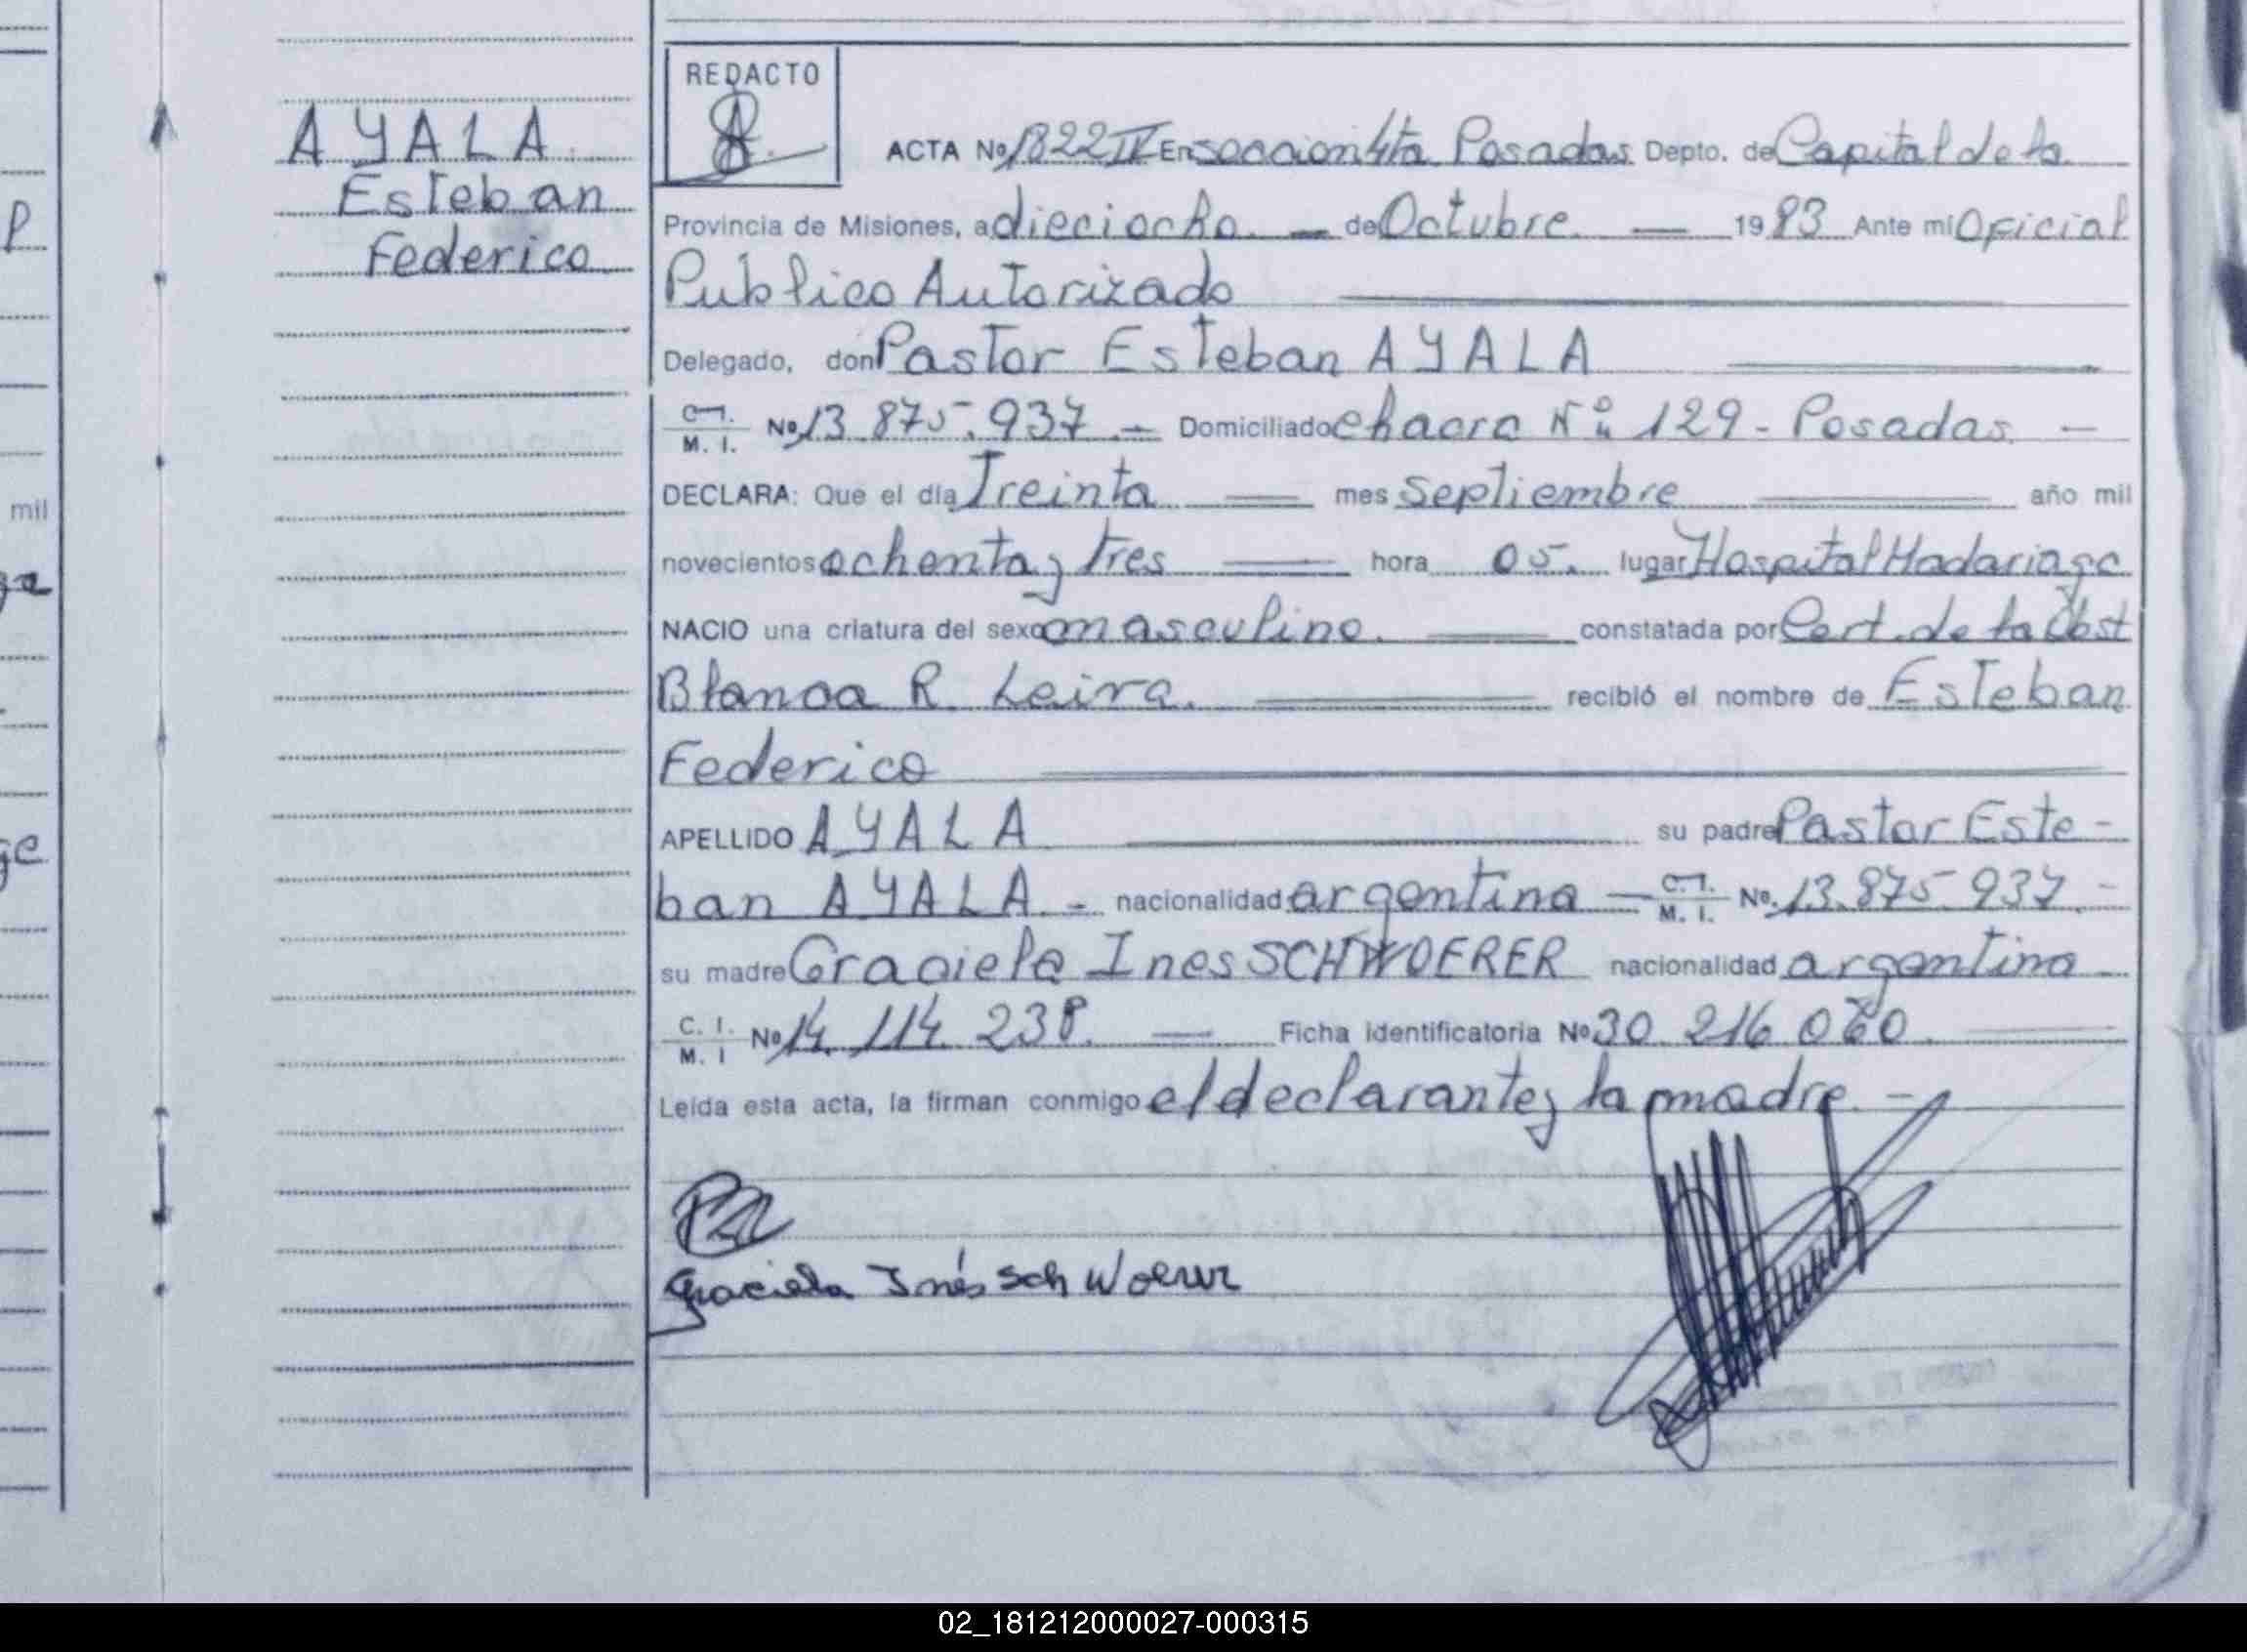 AYALA
Esteban
Federico
REDACTO
ACTA Nº 1822 IV En seccion 4ta Posadas Depto. de Capital de la
Provincia de Misiones, a dieciocho — de Octubre — 1983 Ante mi Oficial
Publico Autorizado
Delegado, don Pastor Esteban AYALA
C.I. M. I. Nº 13.875.937.- Domiciliado chacra Nº 129 - Posadas. -
DECLARA: Que el día Treinta mes septiembre año mil
novecientos ochenta y tres hora 05. lugar Hospital Madariaga
NACIO una criatura del sexo masculino. constatada por Cert. de la Obst
Blanca R. Leira. recibió el nombre de Esteban
Federico
APELLIDO AYALA su padre Pastor Este-
ban AYALA.- nacionalidad argentina — C.I. M. I. Nº. 13.875.937.-
su madre Graciela Ines SCHWOERER nacionalidad argentina
C. I. M. I Nº 14.114.238. — Ficha identificatoria Nº 30.216.060.
Leída esta acta, la firman conmigo el declarante y la madre.-
Graciela Inés Schwoerer
mil
ge
02_181212000027-000315